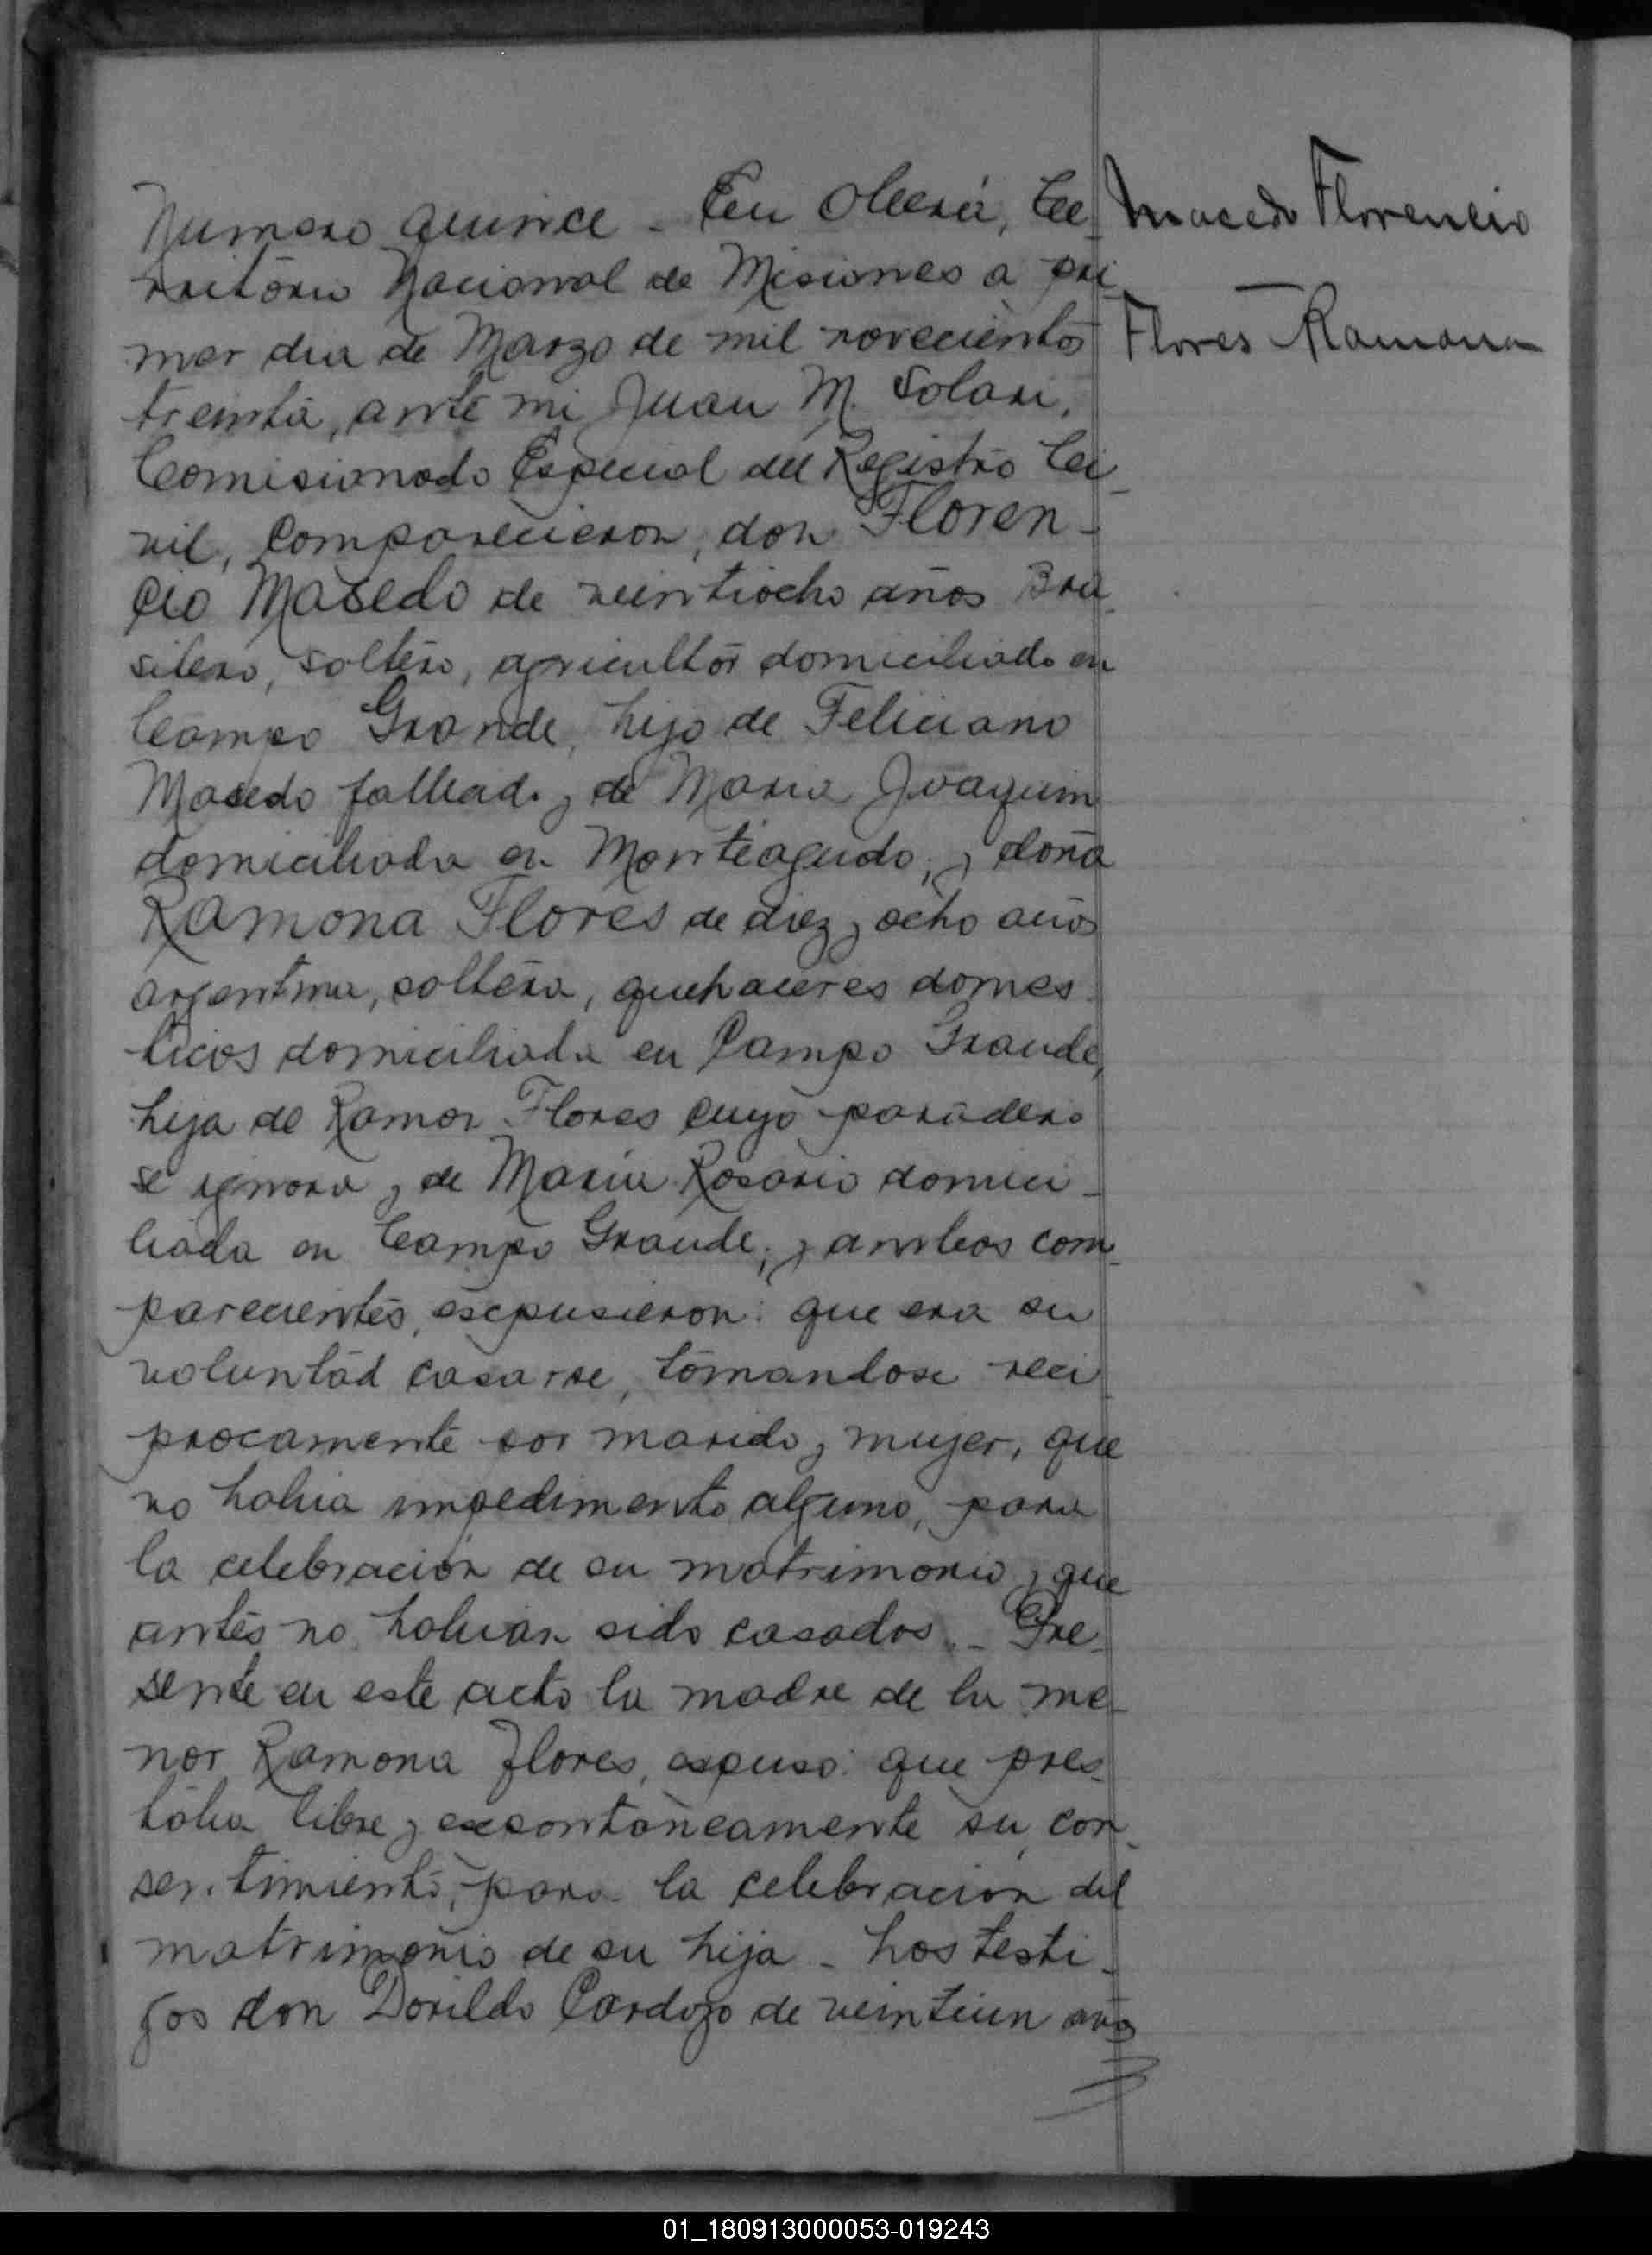 Numero quince - En Oberá, Te-
rritorio Nacional de Misiones a pri-
mer dia de Marzo de mil novecientos
treinta, ante mi Juan M. Solari,
Comisionado Especial del Registro Ci-
vil, Comparecieron, don Floren-
cio Macedo de veintiocho años Bra-
silero, soltero, agricultor domiciliado en
Campo Grande, hijo de Feliciano
Macedo fallecido y de Maria Joaquim
domiciliada en Monteagudo; y doña
Ramona Flores de diez y ocho años
argentina, soltera, quehaceres domes-
ticos domiciliada en Campo Grande,
hija de Ramon Flores cuyo paradero
se ignora y de Maria Rosario domici-
liada en Campo Grande; y ambos com-
parecientes, expusieron: que era su
voluntad casarse, tomandose reci-
procamente por marido y mujer, que
no habia impedimento alguno, para
la celebración de su matrimonio y que
antes no habian sido casados. - Pre-
sente en este acto la madre de la me-
nor Ramona Flores, expuso: que pres-
taba libre y expontaneamente su con-
sentimiento, para la celebracion del
matrimonio de su hija - Los testi-
gos don Dorildo Cardozo de veintiun años
Macedo Florencio
Flores Ramona
01_180913000053-019243